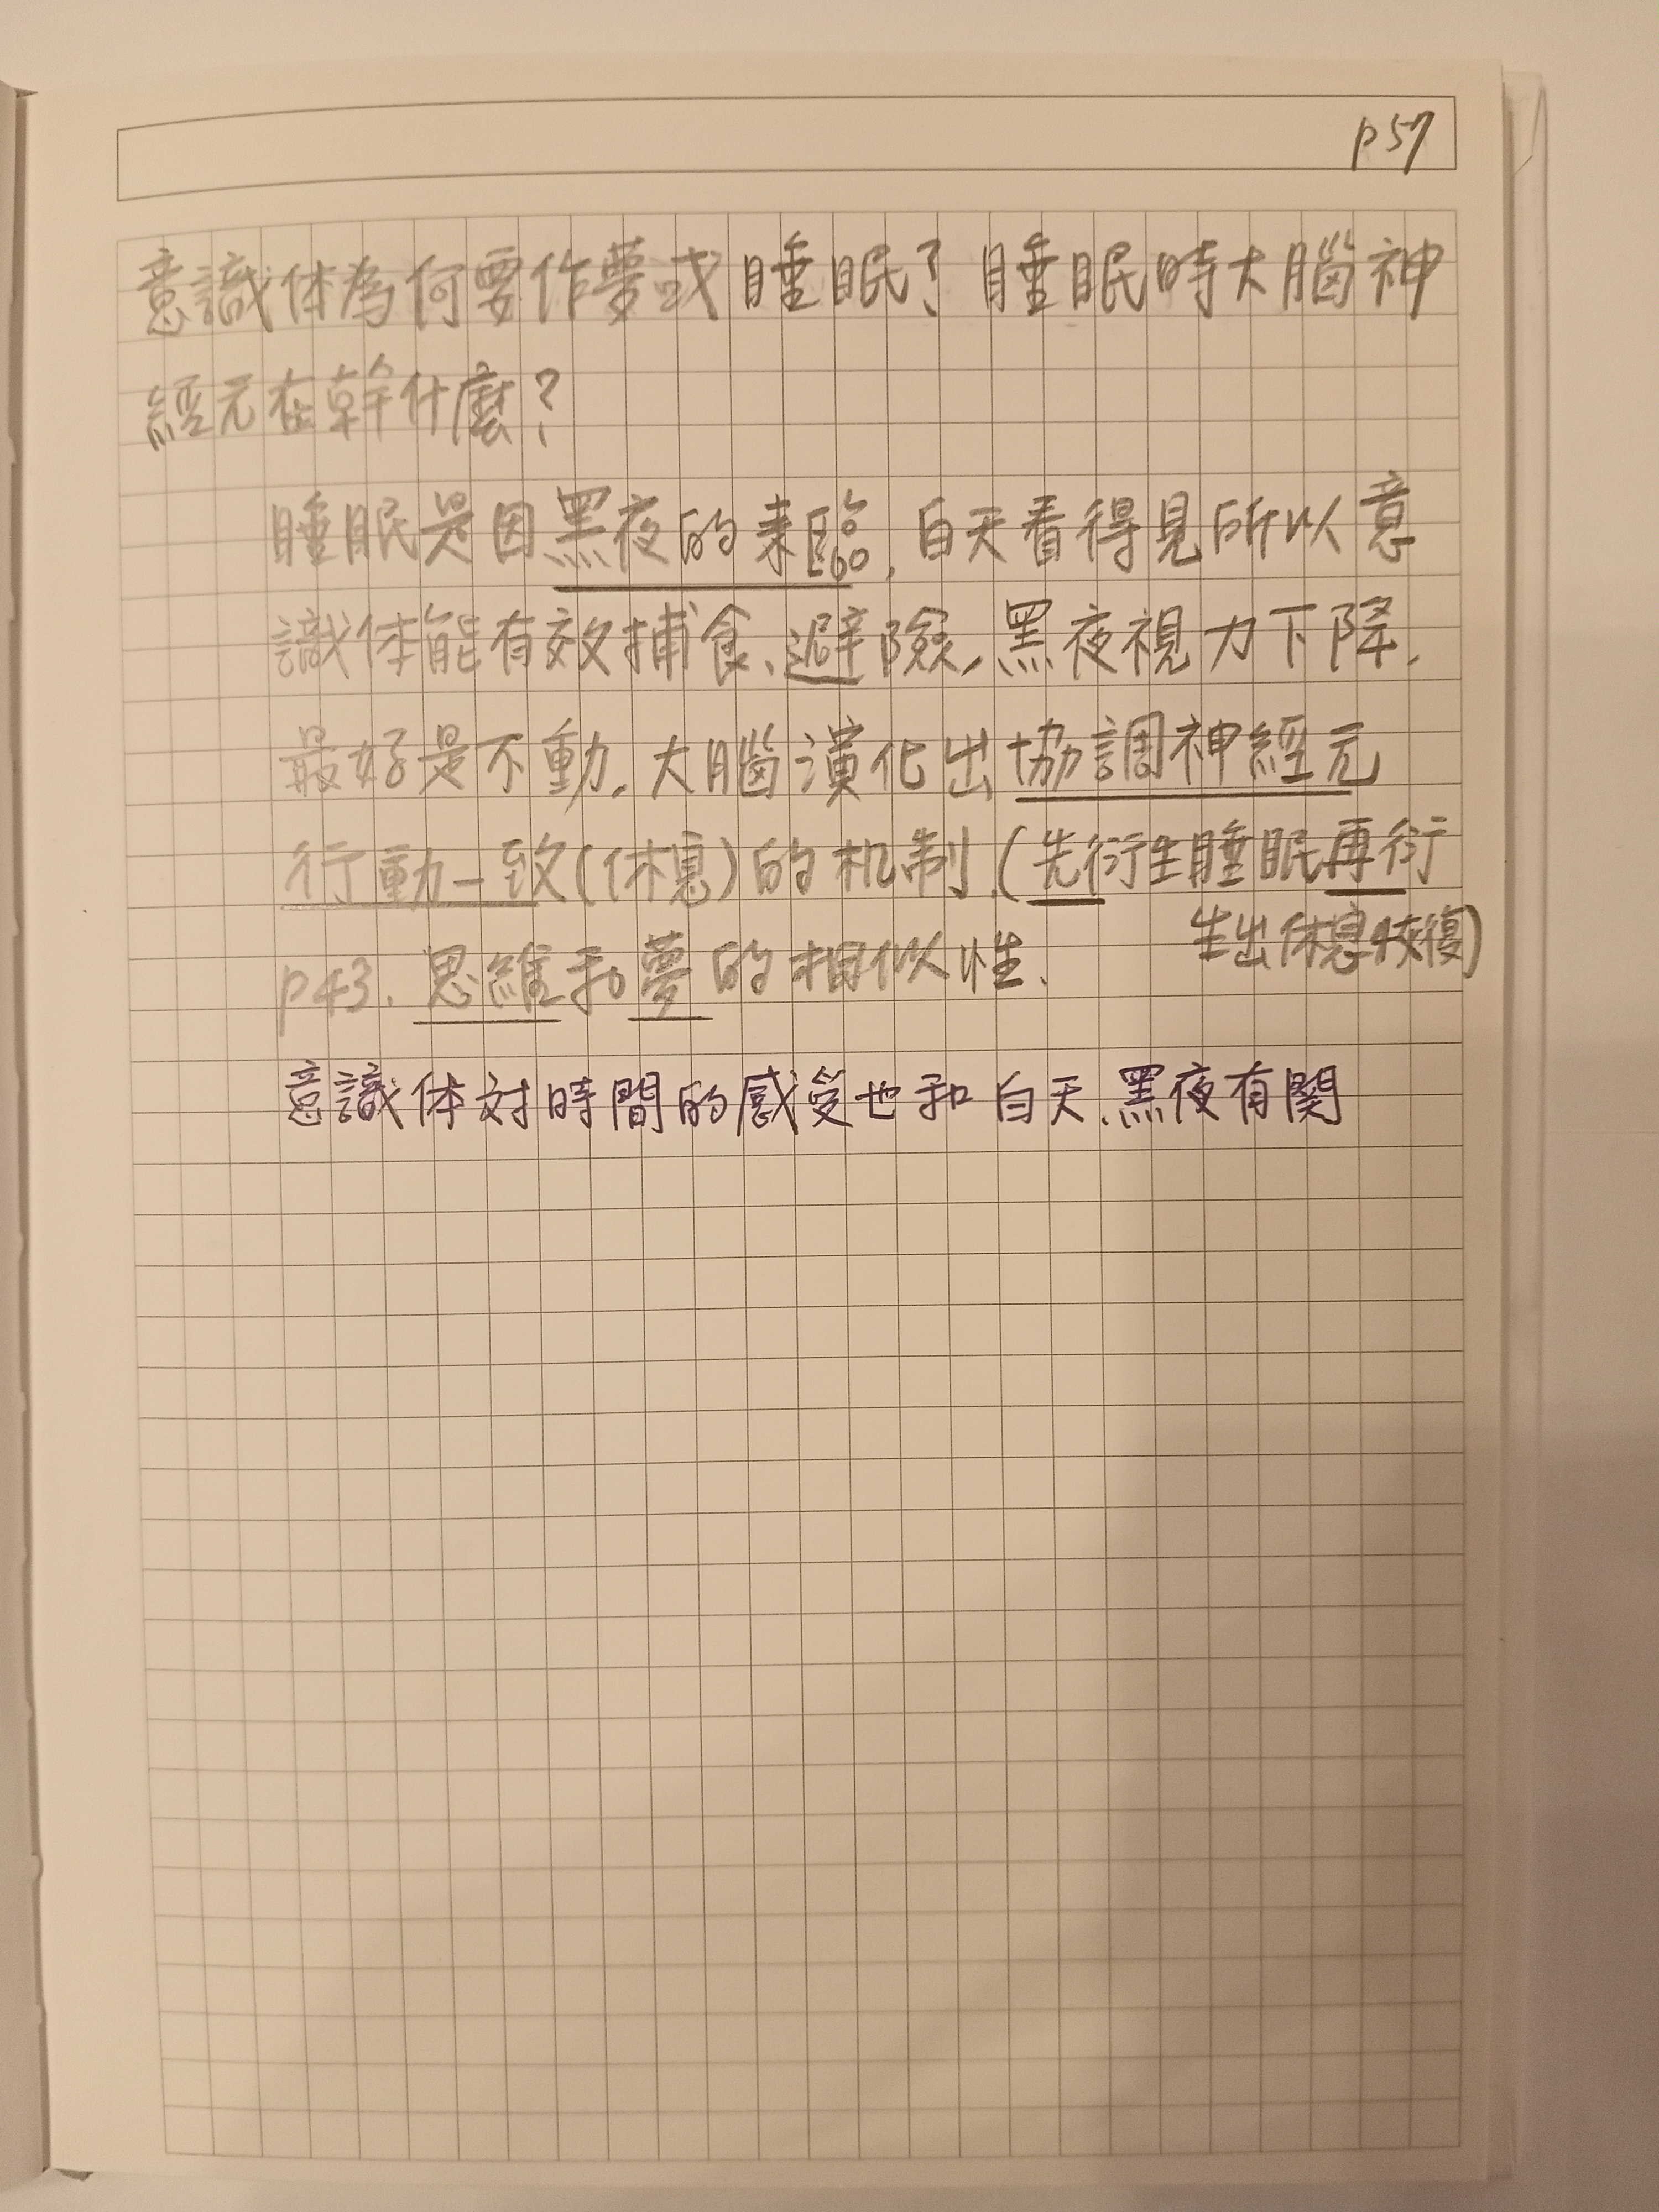 p57
意識体為何要作夢或睡眠?睡眠時大腦神
經元在幹什麼?
睡眠是因黑夜的来臨,白天看得見所以意
識体能有效捕食、避險,黑夜視力下降,
最好是不動,大腦演化出協調神經元
行動一致(休息)的机制.(先衍生睡眠再衍
生出休息恢復)
p43. 思維和夢的相似性、
意識体対時間的感受也和白天、黑夜有関